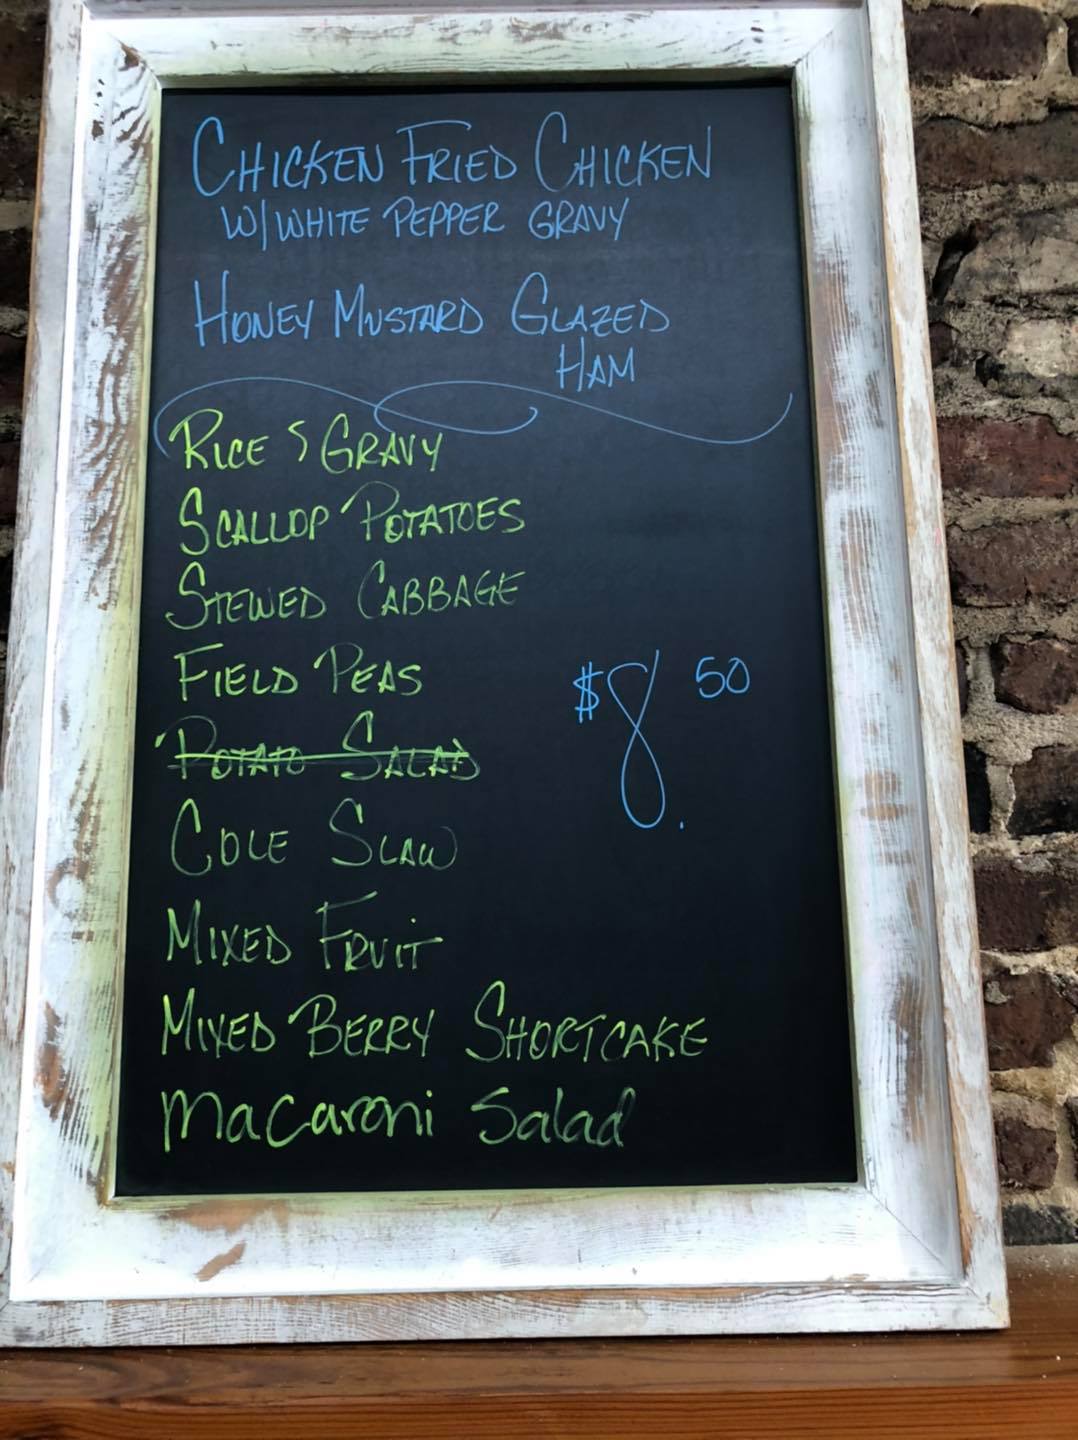 CHICKEN FRIED CHICKEN
W/ WHITE PEPPER GRAVY
HONEY MUSTARD GLAZED
HAM
RICE & GRAVY
SCALLOP POTATOES
STEWED CABBAGE
FIELD PEAS
$8.50
POTATO SALAD
COLE SLAW
MIXED FRUIT
MIXED BERRY SHORTCAKE
macaroni Salad